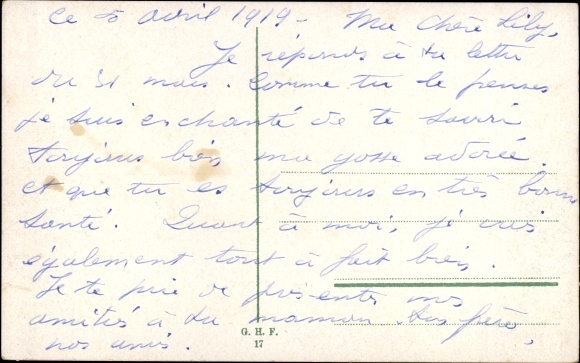 Ce 5 avril 1919 - Ma chère Lily,
Je réponds à ta lettre
du 31 mars. Comme tu le penses
je suis enchanté de te savoir
toujours bien ma gosse adorée.
et que tu es toujours en très bonne
santé. Quant à moi, je vais
également tout à fait bien.
Je te prie de présenter mes
amitiés à ta maman, père,
nos amis.
G. H. F.
17